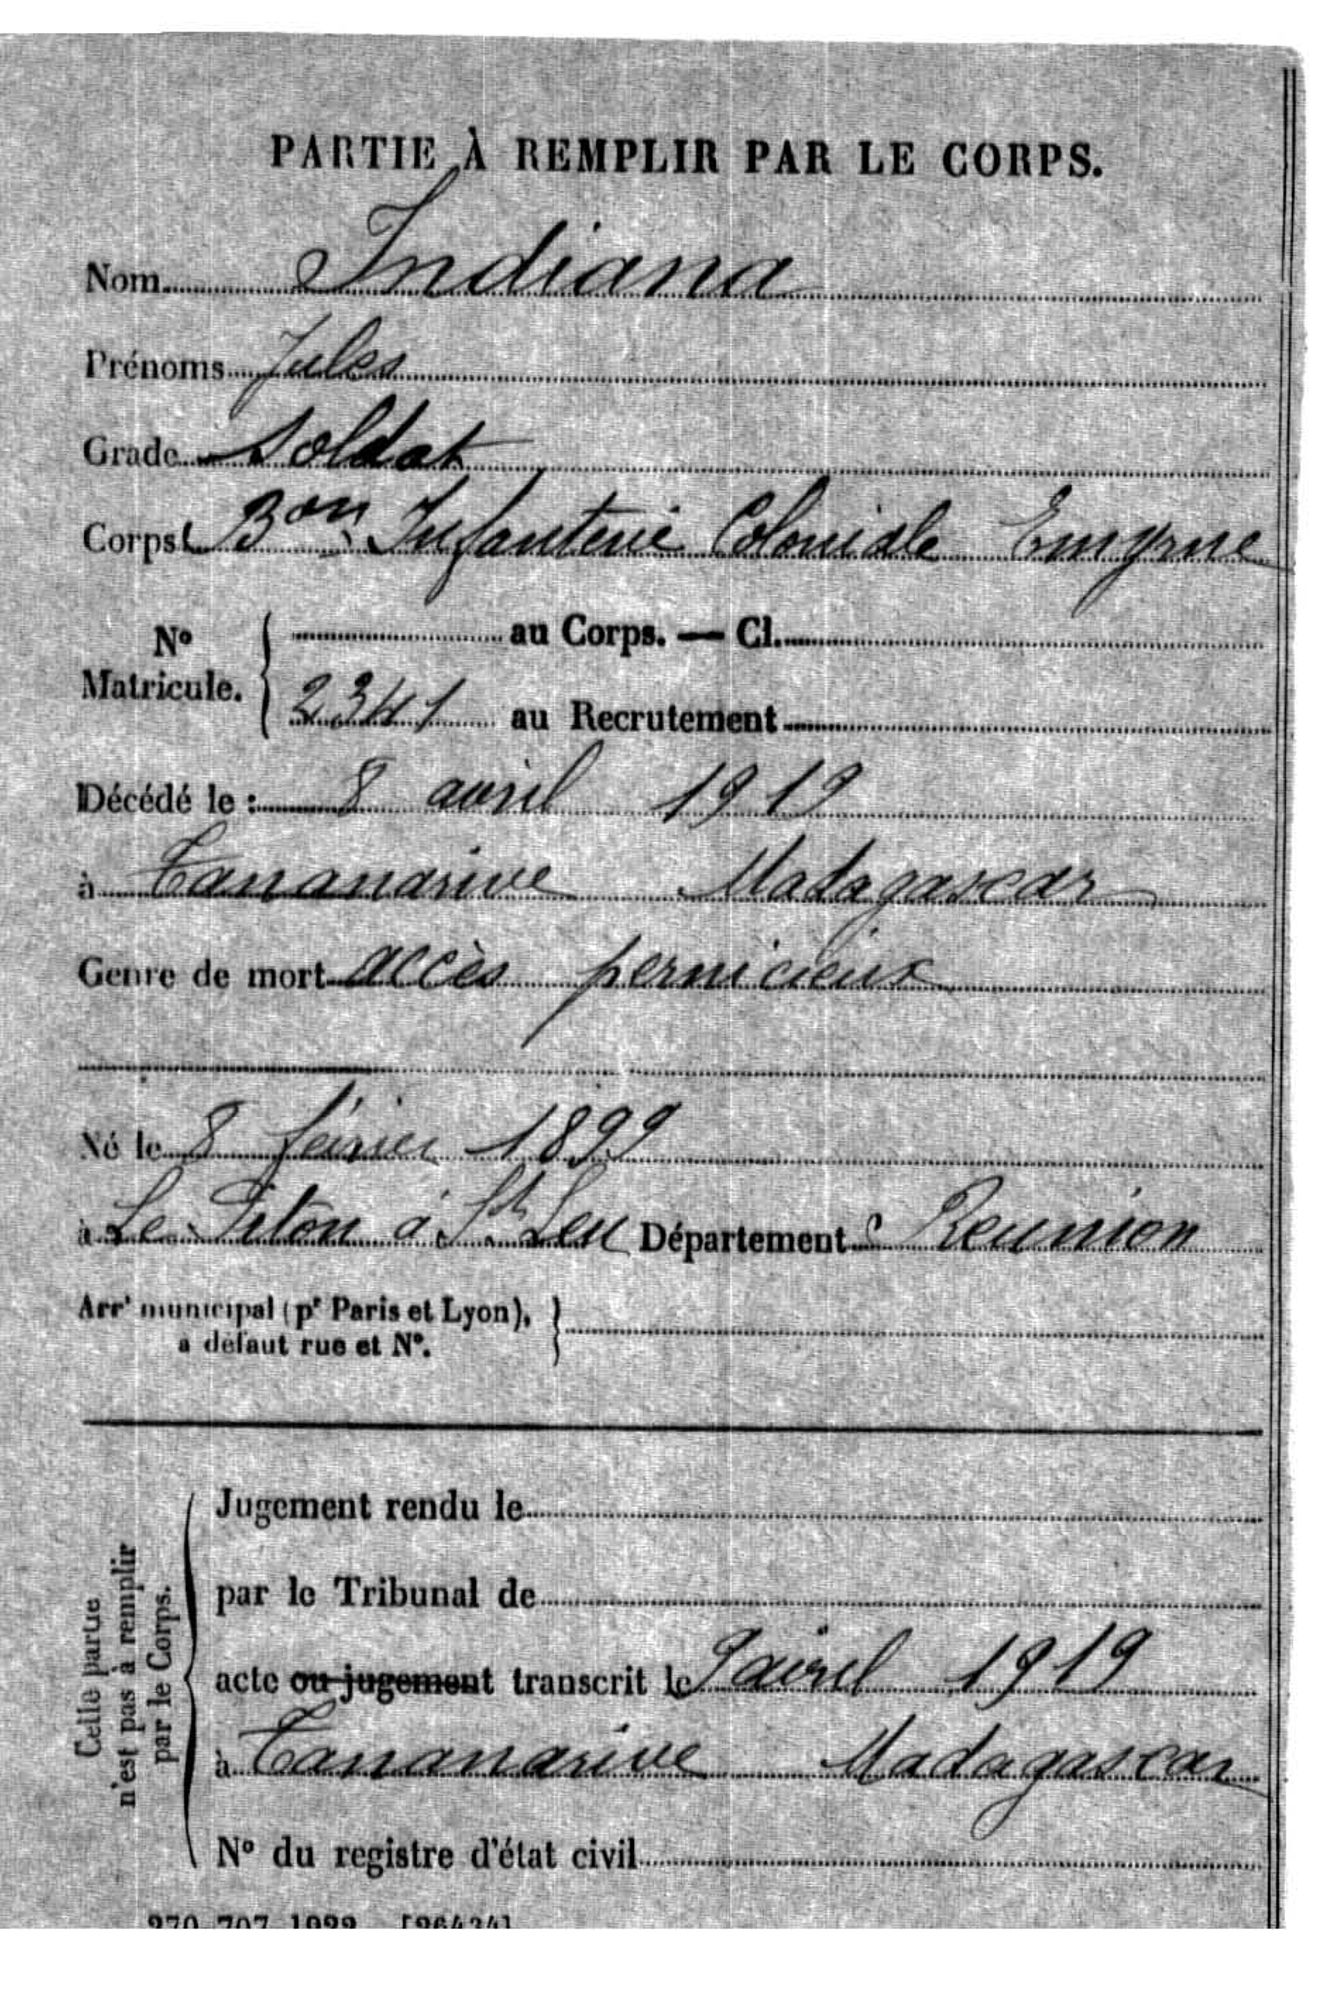 PARTIE À REMPLIR PAR LE CORPS.
Nom Indiana
Prénoms Jules
Grade Soldat
Corps Bon Infanterie Coloniale Emyrne
No Matricule. { au Corps. — Cl.
2341 au Recrutement
Décédé le : 8 avril 1919
à Tananarive Madagascar
Genre de mort accès pernicieux
Né le 8 février 1899
à Le Piton à St Leu Département Reunion
Arrt municipal (pr Paris et Lyon),
à défaut rue et No.
Cette partie
n'est pas à remplir
par le Corps.
Jugement rendu le
par le Tribunal de
acte ou jugement transcrit le 9 avril 1919
à Tananarive Madagascar
No du registre d'état civil
270-707-1922. [26434]